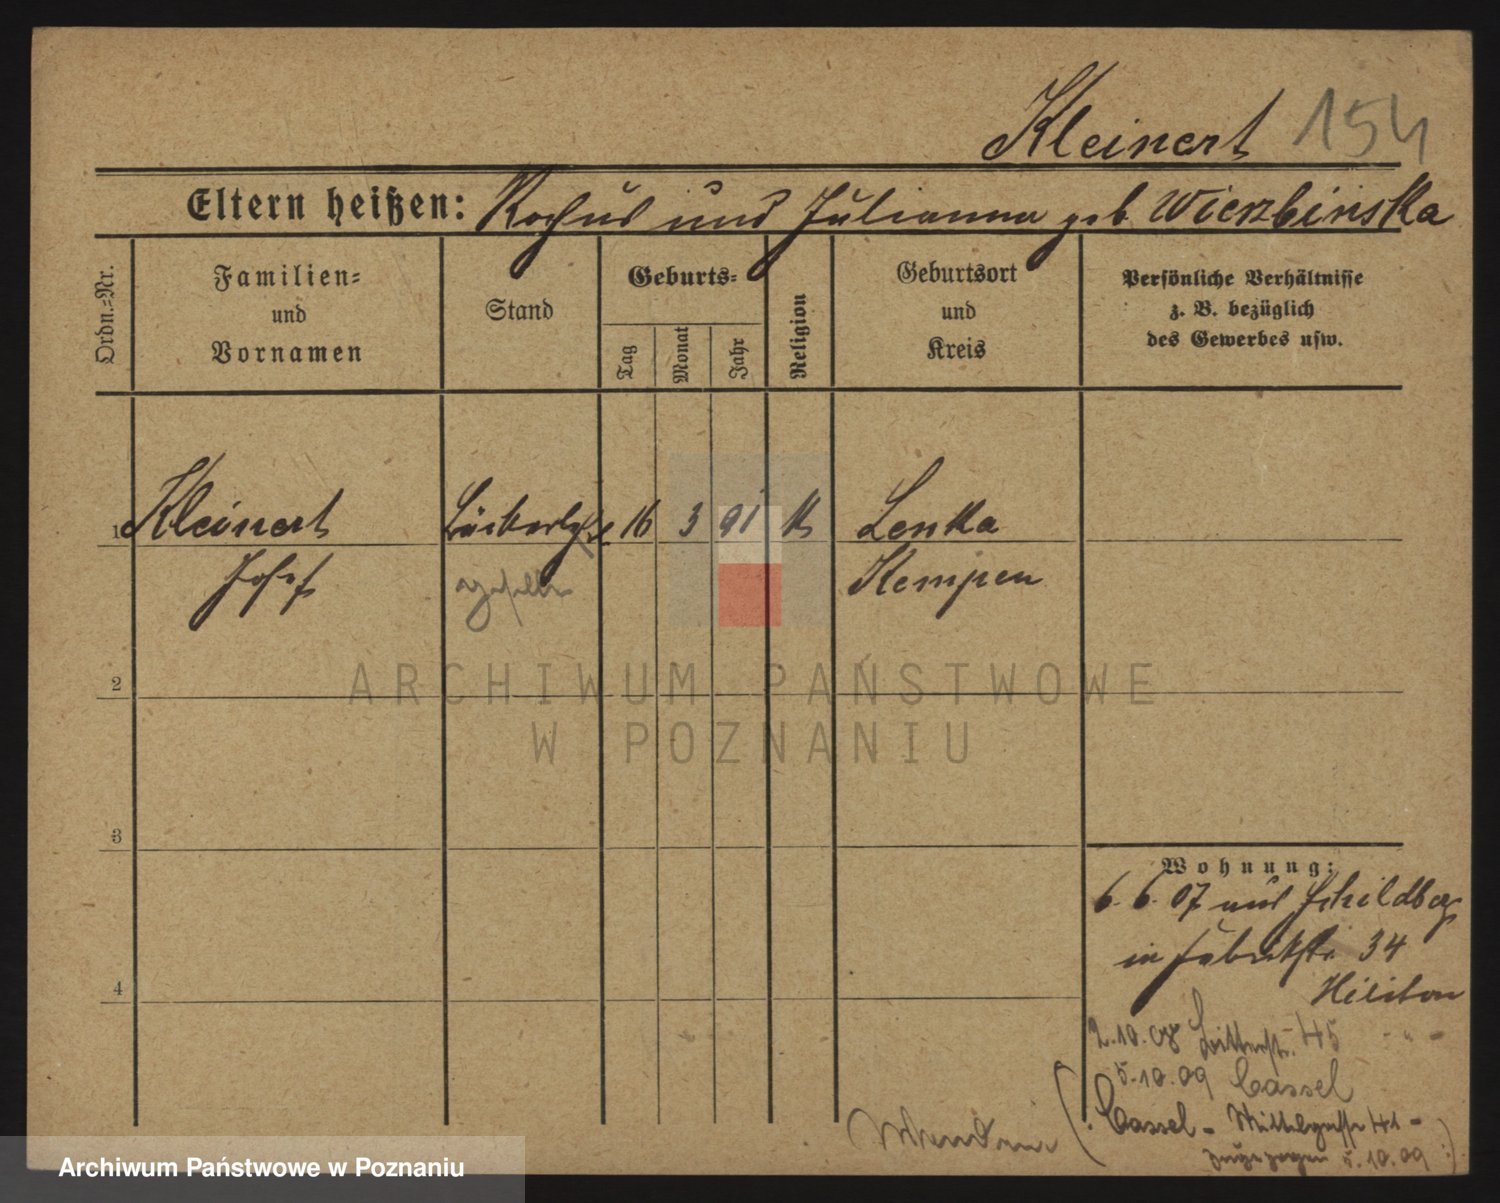 Kleinert 154
Eltern heißen: Rochus und Julianna geb Wierzbinska
Ordn.=Nr.
Familien=
und
Vornamen
Stand
Geburts=
Tag
Monat
Jahr
Religion
Geburtsort
und
Kreis
Persönliche Verhältnisse
z. B. bezüglich
des Gewerbes usw.
1 Kleinert 16 3 91 K Lenka
Josef geselle Kempen
2
ARCHIWUM PAŃSTWOWE
W POZNANIU
3
Wohnung:
6. 6. 07 aus Schildberg
in 34
4
2.10.08 Ritterstr. 45 - " -
5.10.09 Cassel
(Cassel - Mittelgasse 41 -
zugezogen 5.10.09)
Archiwum Państwowe w Poznaniu